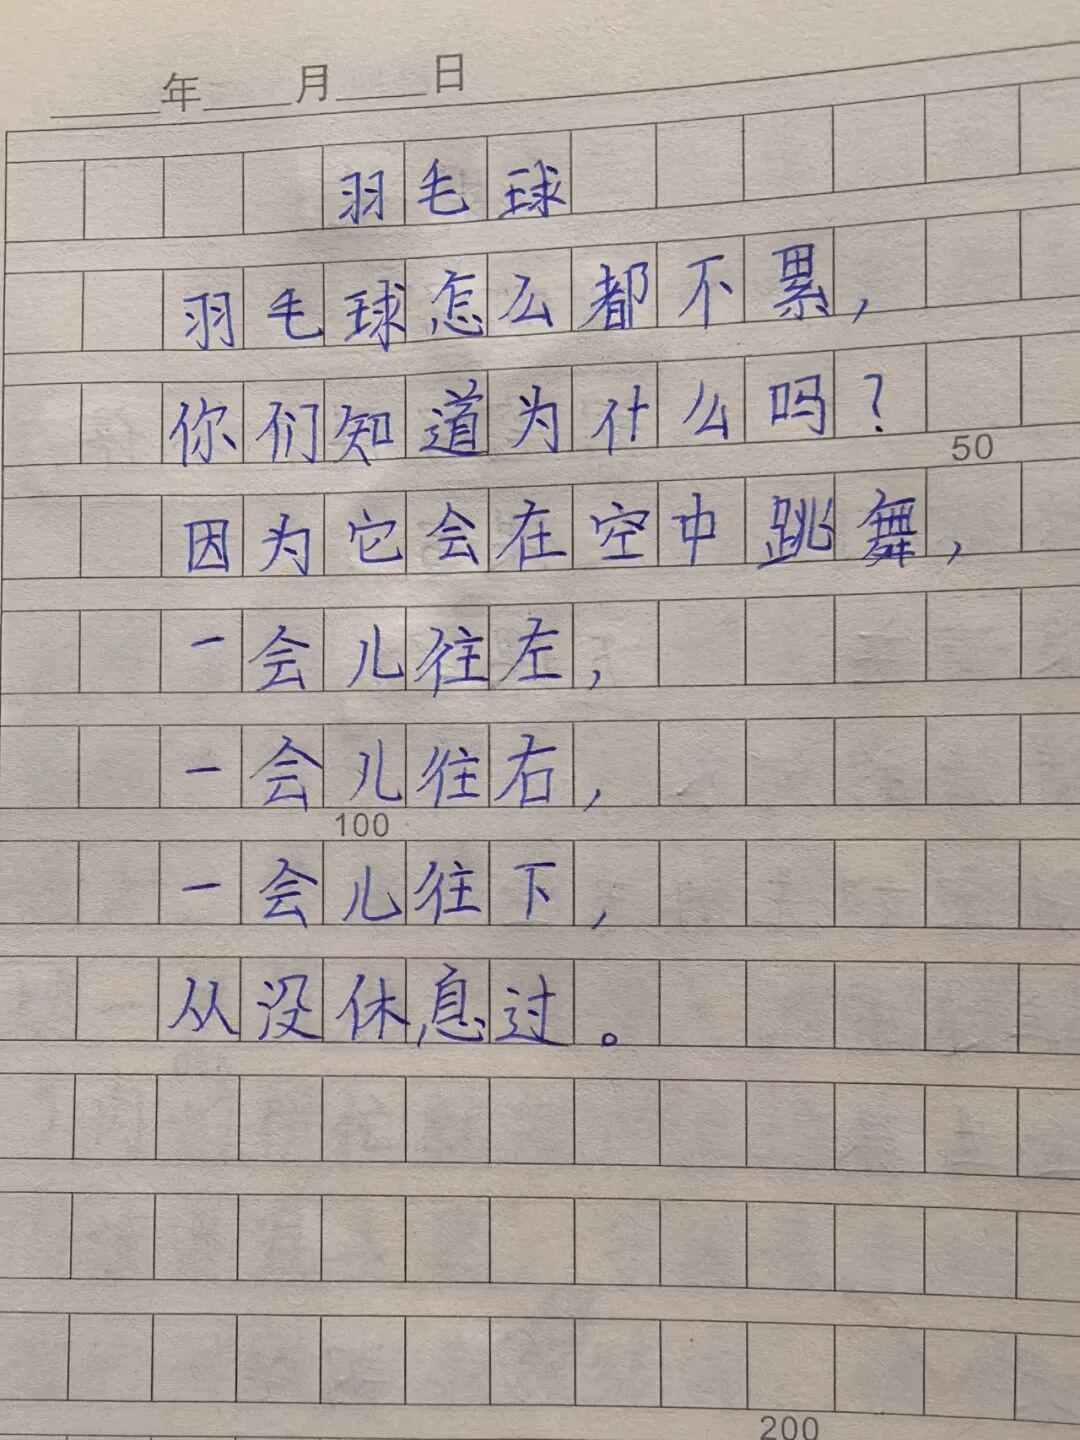 ____年____月____日
羽毛球
羽毛球怎么都不累，
你们知道为什么吗？
50
因为它会在空中跳舞，
一会儿往左，
一会儿往右，
100
一会儿往下，
从没休息过。
200